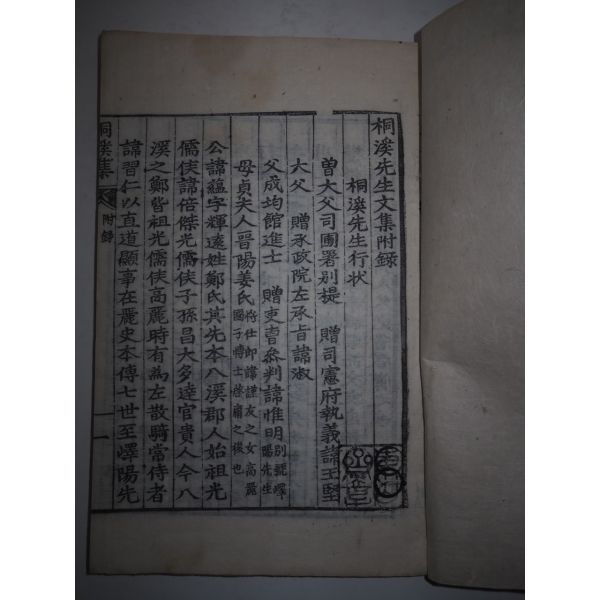 桐溪先生文集附錄
桐溪先生行狀
曽大父司圃署别提 贈司憲府執義諱玉堅
大父 贈承政院左承旨諱淑
父成均館進士 贈吏曺參判諱惟明别號嶧陽先生
母貞夫人晉陽姜氏將仕郎諱謹友之女高麗國子博士啓庸之後也
公諱蘊字輝遠姓鄭氏其先本八溪郡人始祖光
儒侯諱倍傑光儒侯子孫昌大多達官貴人今八
溪之鄭皆祖光儒侯高麗時有為左散騎常侍者
諱習仁以直道顯事在麗史本傳七世至嶧陽先
桐溪集 附錄 一